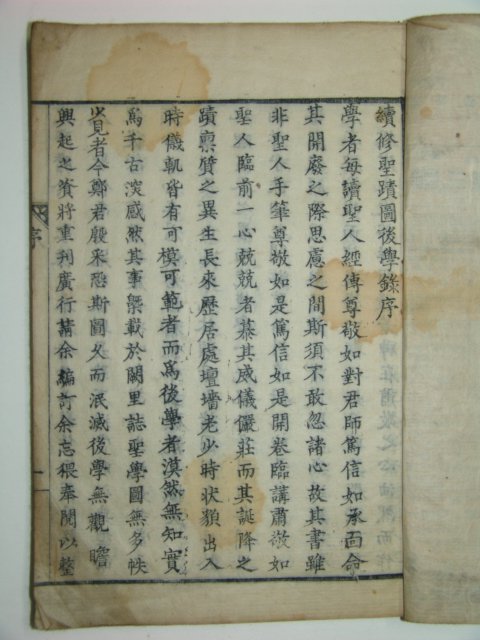 續修聖蹟圖後學錄序
學者每讀聖人經傳尊敬如對君師篤信如承面命
其開廢之際思慮之間斯須不敢忽諸心故其書雖
非聖人手筆尊敬如是篤信如是開卷臨講肅敬如
聖人臨前一心兢兢者慕其威儀儼莊而其誕降之
蹟禀質之異生長來歷居處壇墻老少時狀䫉出入
時儀軌皆有可模可範者而爲後學者漠然無知實
爲千古深感然其事槩載於闕里誌聖學圖無多帙
覽者今鄭君殷采恐斯圖久而泯滅後學無觀瞻
興起之資將重刊廣行請余編訂余忘猥奉閱以整
序